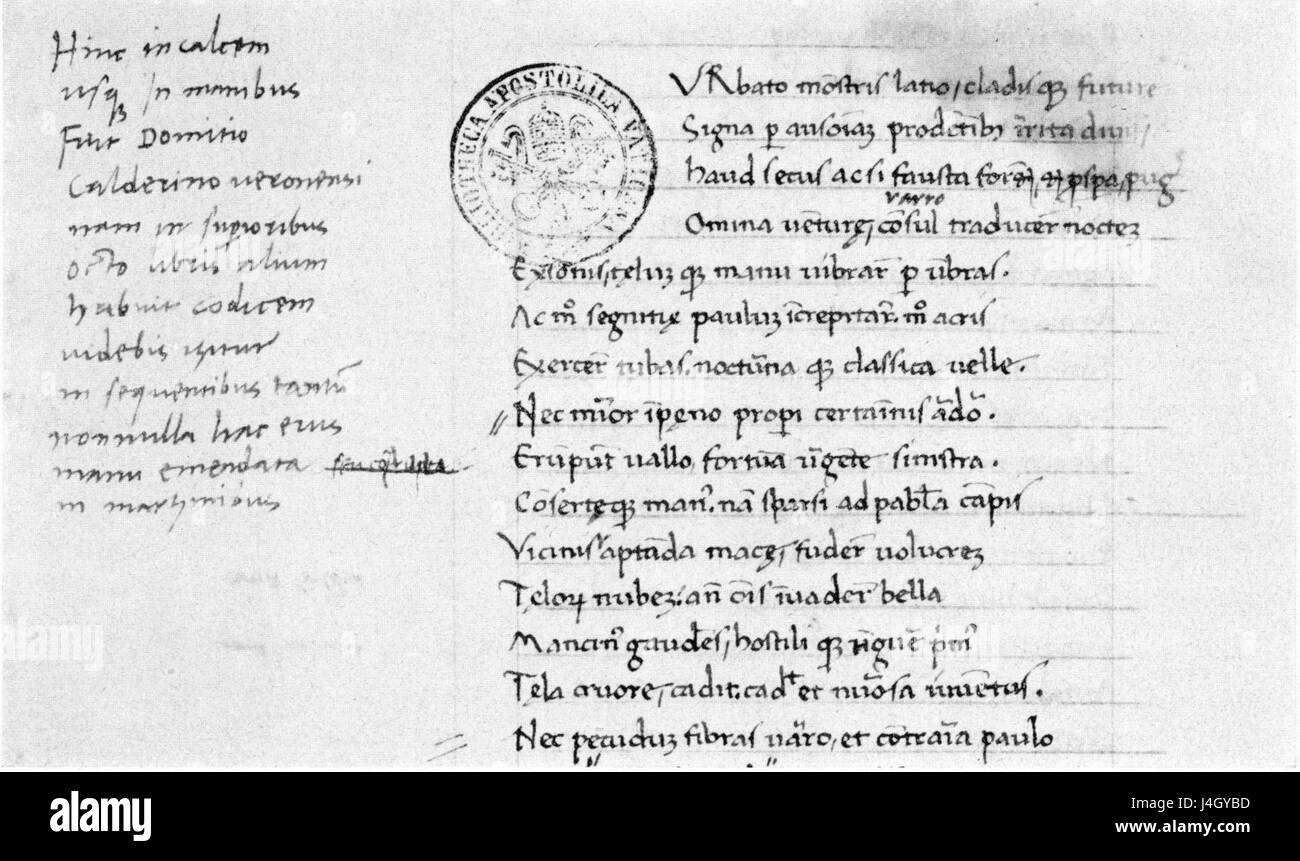 Hinc in calcem
usq in manibus
Fuit Domitio
Calderino veronensi
nam in superioribus
octo libris alium
habuit codicem
videbis igitur
in sequentibus tantū
nonnulla hac eius
manu emendata
in marginibus
BIBLIOTHECA APOSTOLICA VATICANA
VRbato mōstris latio, cladisq future
Signa p ausoiaz prodētibꝰ irrita diui,
haud secus ac si fausta forēt, et pspa, pug
varro
Omina vēturę, cōsul traducer̄ noctez
Exōnis, telūz q manu vibrar̄ p ūbras.
Ac mō segnitię pauluz īcrepitar̄. mō acris
Exercer̄ tubas. nocturna q classica velle.
Nec mīor ī peno properi certamīs ardor.
Erūpūt vallo, fortūa ūgēte sinistra.
Cōserteq manꝰ. nā sparsi ad pabula cāpis
Vicinis aptāda macę, fuder̄ volucrez
Telorꝝ nubez. an̄ ōīs īuader̄ bella
Mancinꝰ gaudēs, hostili q īgue prīmꝰ
Tela cruore, cadit. cadit et nūosa iuuētus.
Nec pecuduz fibras varro, et cōtraria paulo
alamy
Image ID: J4GYBD
www.alamy.com